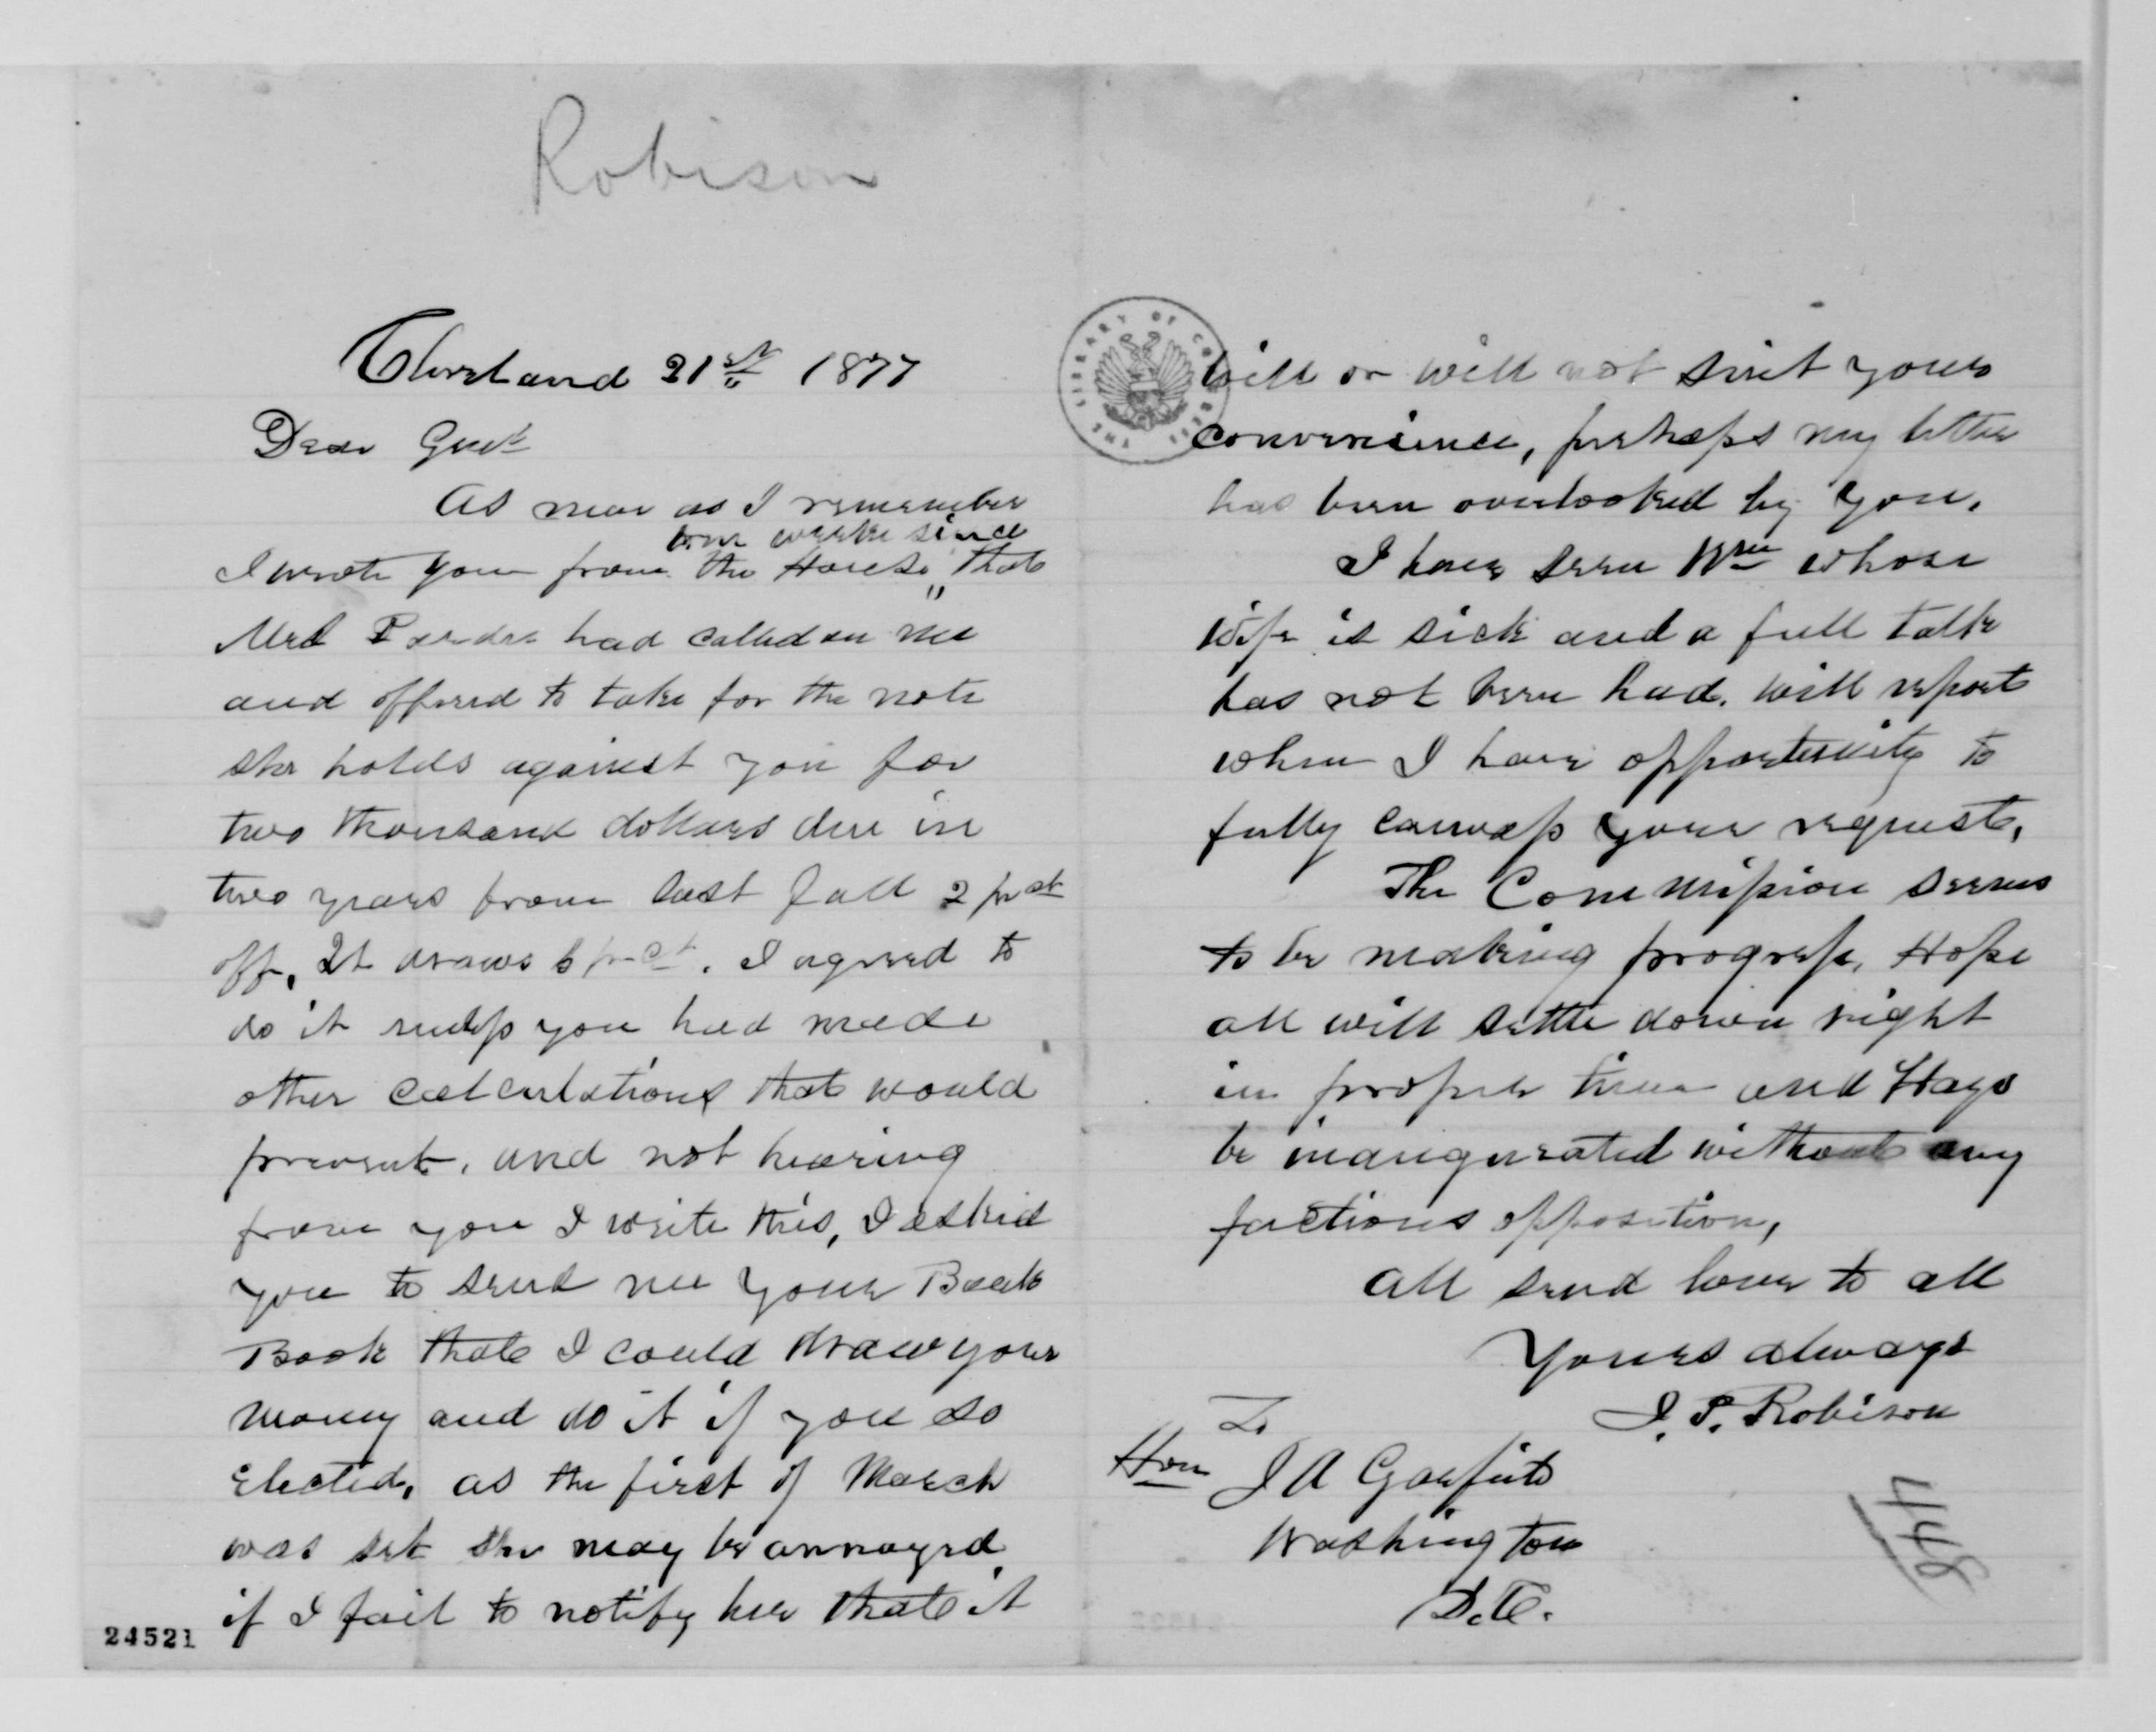 Robison
Cleveland 21st 1877
Dear Genl
As near as I remember
some weeks since
I wrote you from the House, that
Mrs had called on me
and offered to take for the note
she holds against you for
two thousand dollars due in
two years from last fall 2 pr ct
off, It draws 6 pr ct. I agreed to
do it unless you had made
other calculations that would
prevent, and not hearing
from you I write this, I asked
you to send me your Bank
Book that I could draw your
money and do it if you so
Elected, as the first of March
was set she may be annoyed
if I fail to notify her that it
24521
THE LIBRARY OF CONGRESS
will or will not suit your
convenience, perhaps my letter
has been overlooked by you.
I have seen Wm whose
wife is sick and a full talk
has not been had. Will report
when I have opportunity to
fully canvass your request.
The Commission seems
to be making progress. Hope
all will settle down right
in proper time and Hays
be inaugurated without any
factious opposition,
All send love to all
Yours always
J. P. Robison
To
Hon J A Garfield
Washington
D.C.